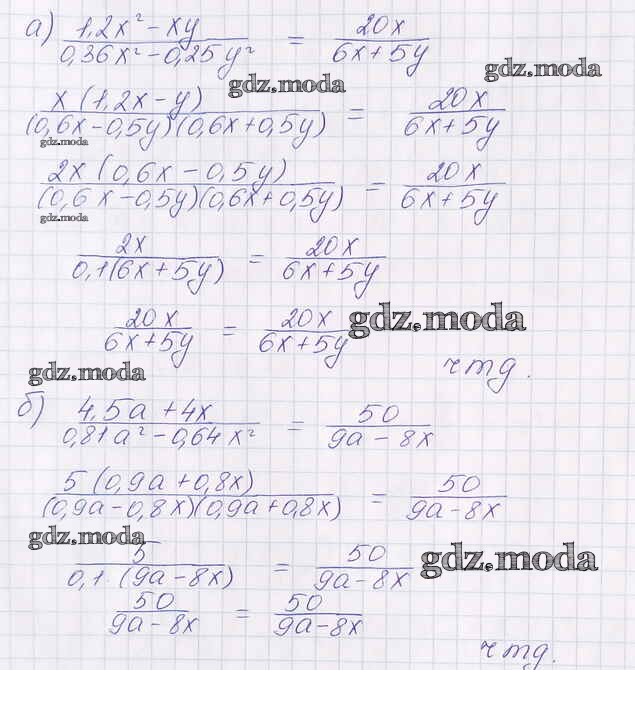 а) (1,2x² - xy)/(0,36x² - 0,25y²) = 20x/(6x + 5y)
gdz.moda
gdz.moda
x(1,2x - y)/((0,6x - 0,5y)(0,6x + 0,5y)) = 20x/(6x + 5y)
gdz.moda
2x(0,6x - 0,5y)/((0,6x - 0,5y)(0,6x + 0,5y)) = 20x/(6x + 5y)
gdz.moda
2x/(0,1(6x + 5y)) = 20x/(6x + 5y)
20x/(6x + 5y) = 20x/(6x + 5y)
gdz.moda
gdz.moda
чтд.
б) (4,5a + 4x)/(0,81a² - 0,64x²) = 50/(9a - 8x)
5(0,9a + 0,8x)/((0,9a - 0,8x)(0,9a + 0,8x)) = 50/(9a - 8x)
gdz.moda
5/(0,1·(9a - 8x)) = 50/(9a - 8x)
gdz.moda
50/(9a - 8x) = 50/(9a - 8x)
чтд.